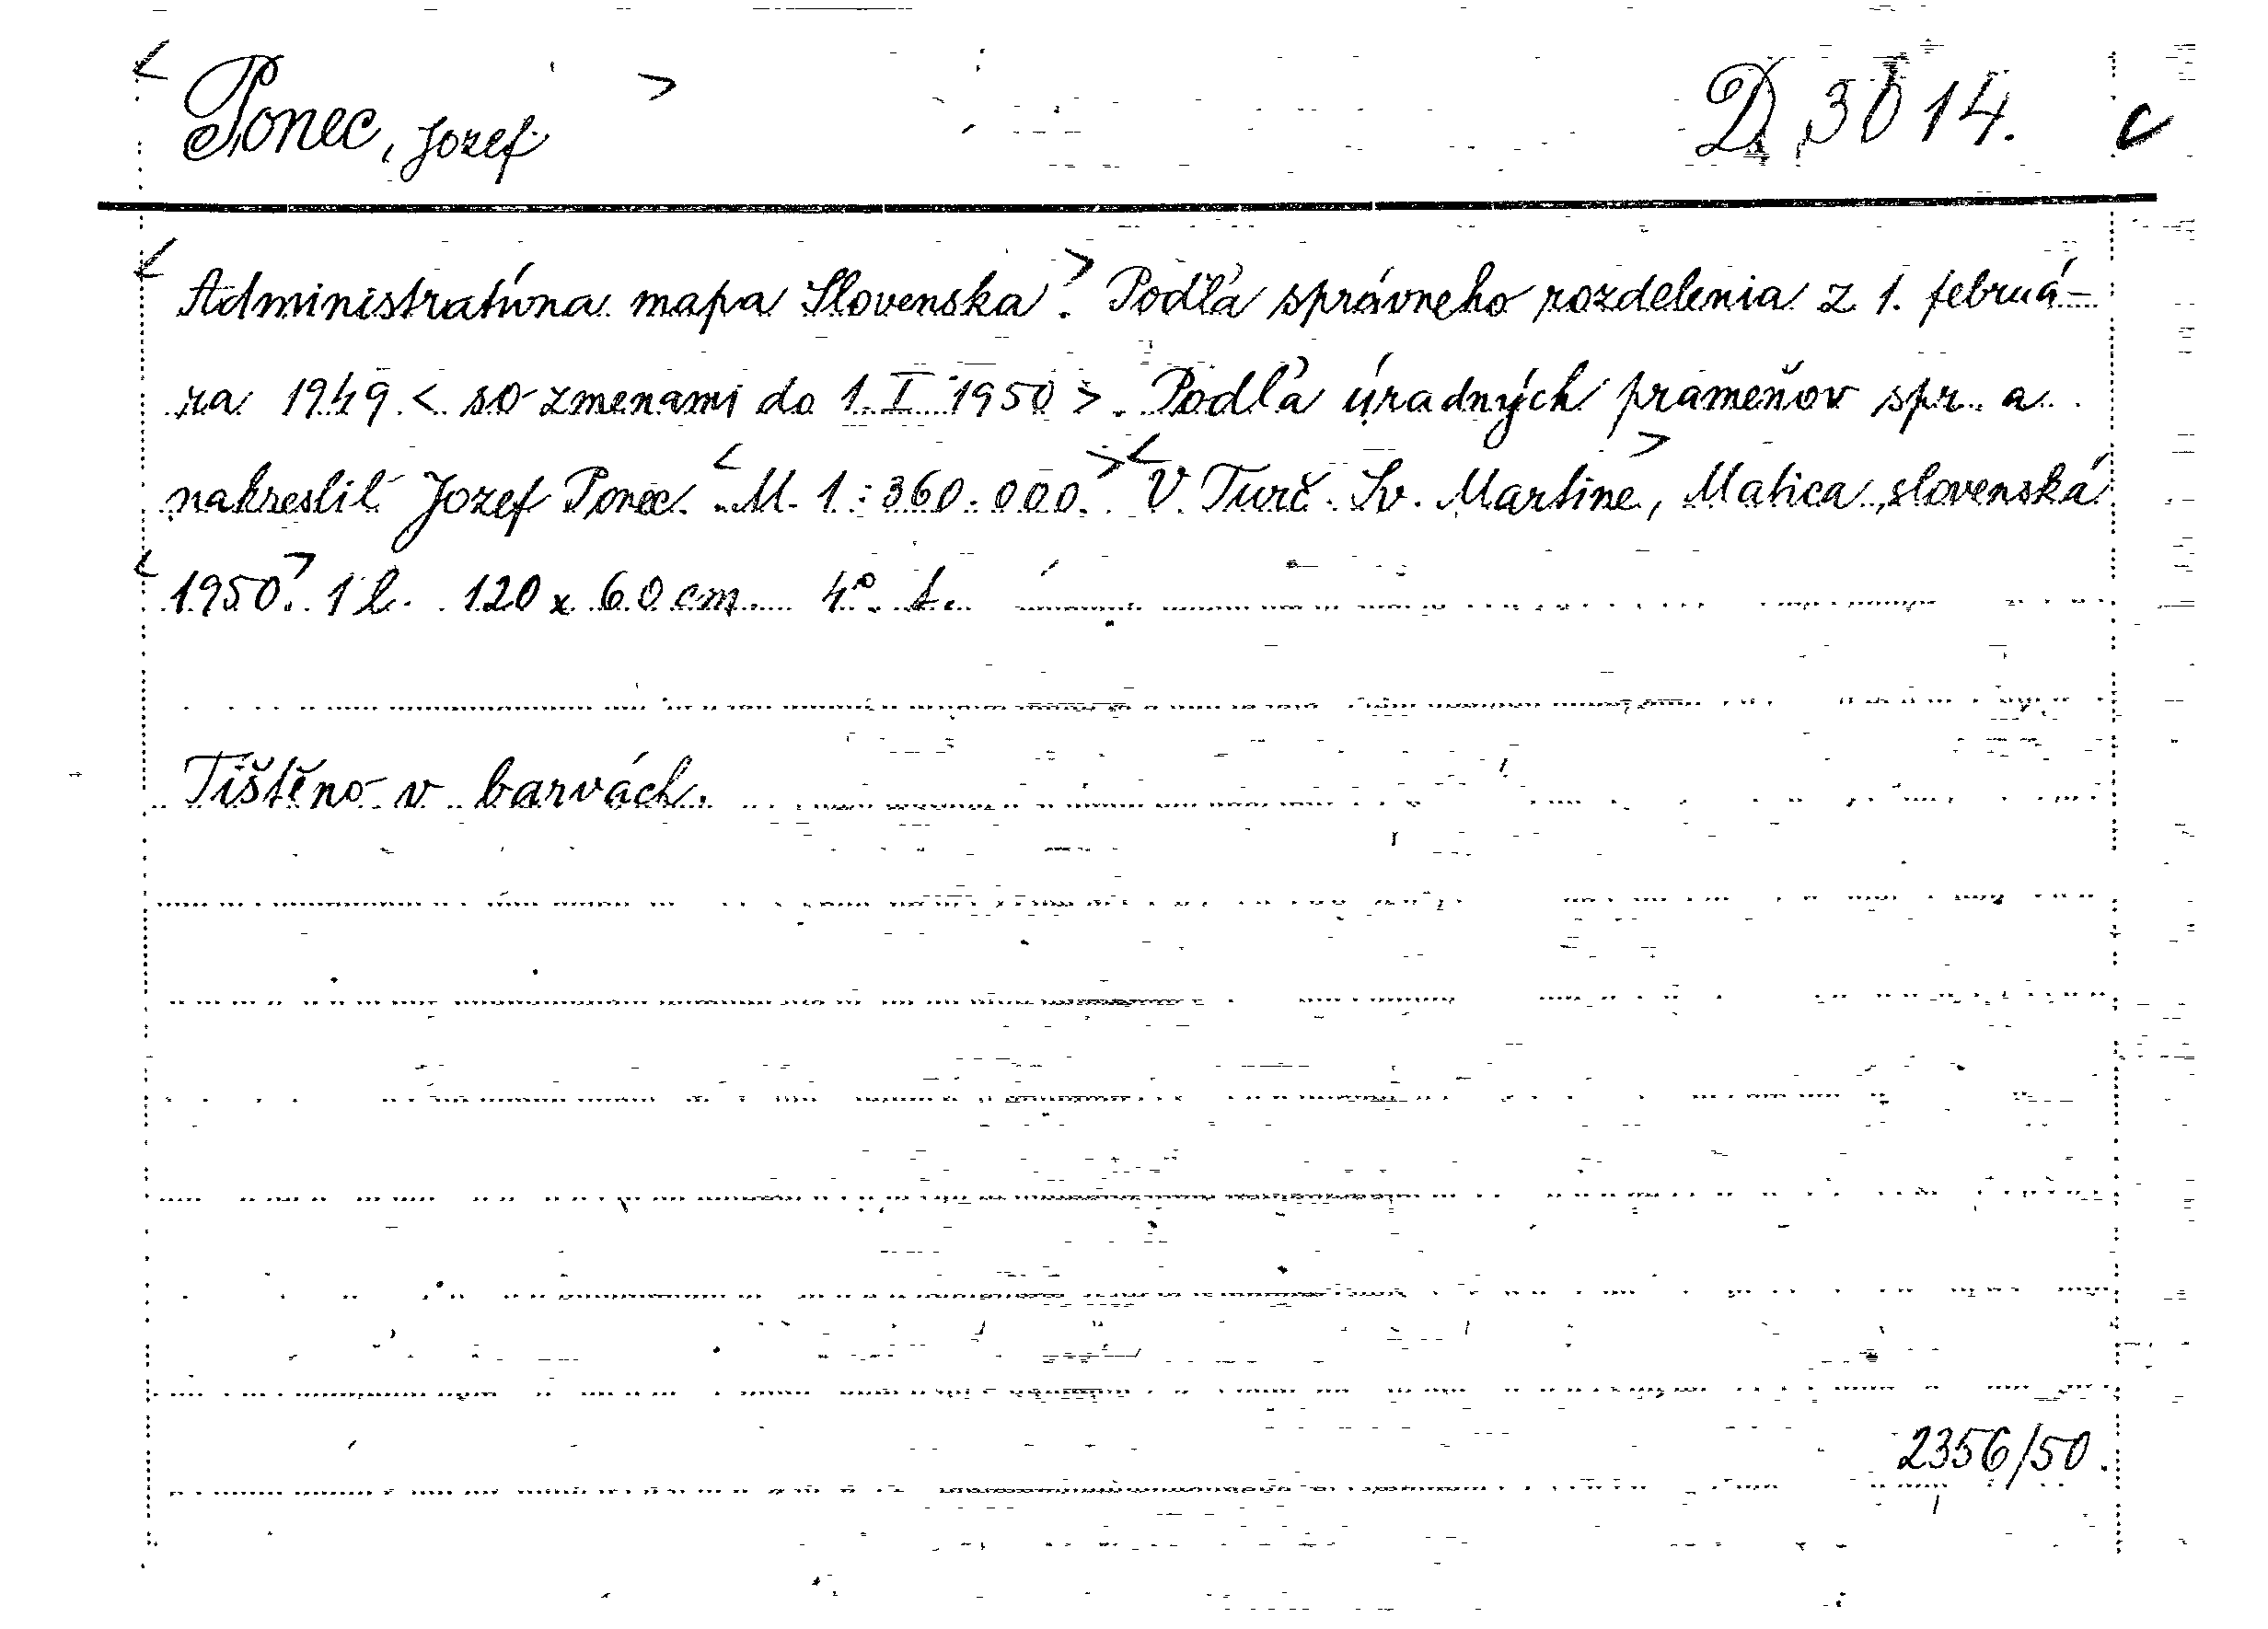 < Ponec, Jozef > D 3014. c
< Administratívna mapa Slovenska >. Podľa správneho rozdelenia z 1. februá-
ra 1949 < so zmenami do 1. I. 1950 >. Podľa úradných prameňov spr. a
nakreslil Jozef Ponec. < M. 1:360.000. > < V Turč. Sv. Martine >, Matica slovenská
< 1950 >. 1 l. 120 x 60 cm. 4°. t.
Tištěno v barvách.
2356/50.